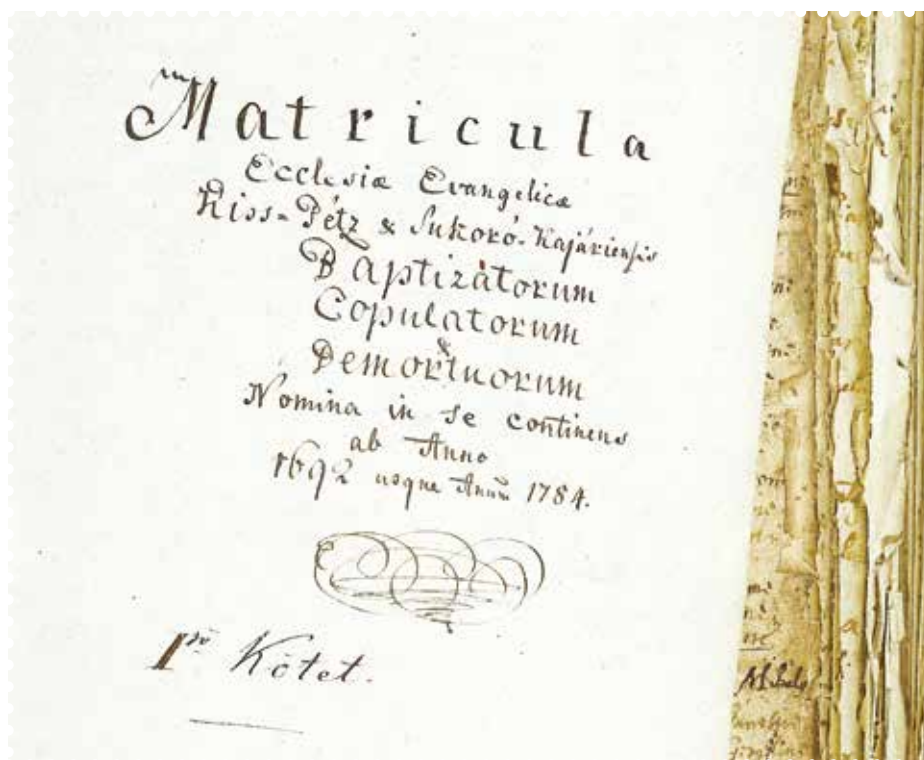 Matricula
Ecclesiæ Evangelicæ
Kiss-Pétz & Sukoró-Kajáriensis
Baptizatorum
Copulatorum
&
Demortuorum
Nomina in se continens
ab Anno
1692 usque Annũ 1784.
1ső Kötet.